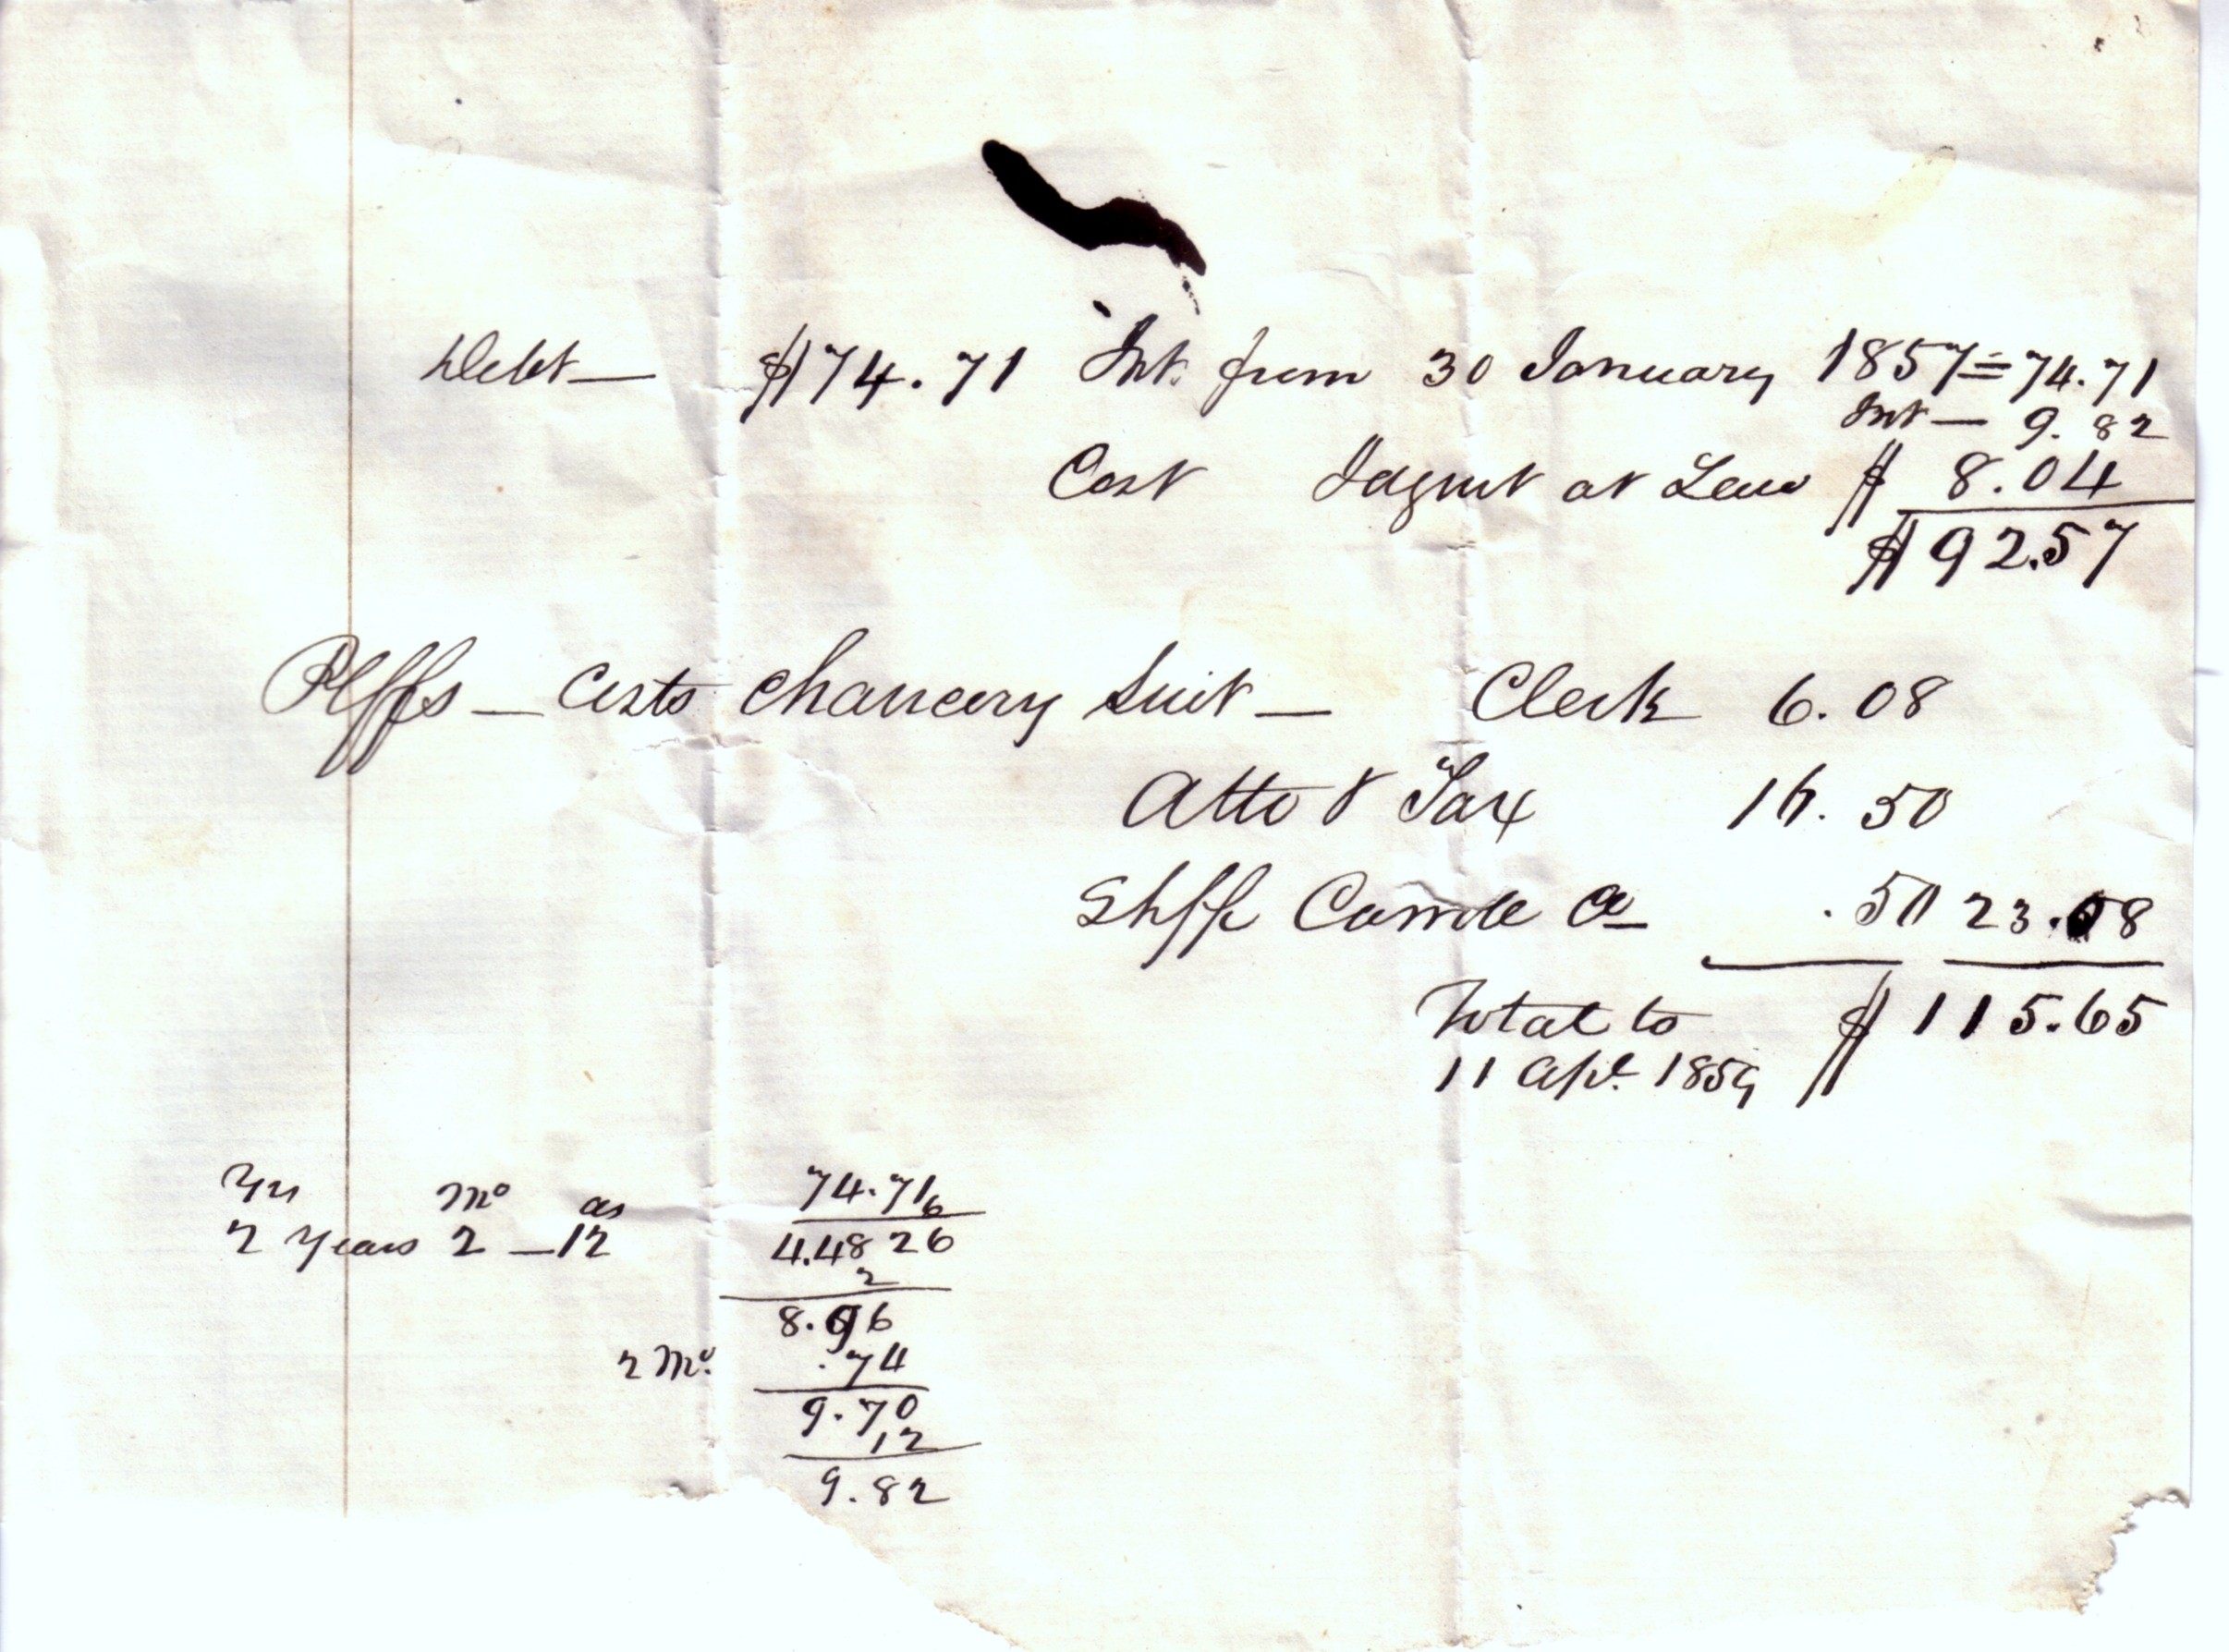 Debt — $74.71 Int. from 30 January 1857 = 74.71
Int — 9.82
Cost Judgmt at Law $ 8.04
$92.57
Plffs — Costs Chancery Suit — Clerk 6.08
Atto & Tax 16.50
Shff .50 23.08
Total to $115.65
11 Apl. 1859
Yrs Mo ds 74.71
6
2 Years 2 — 12 4.4826
2
8.96
2 Mo. .74
9.70
12
9.82